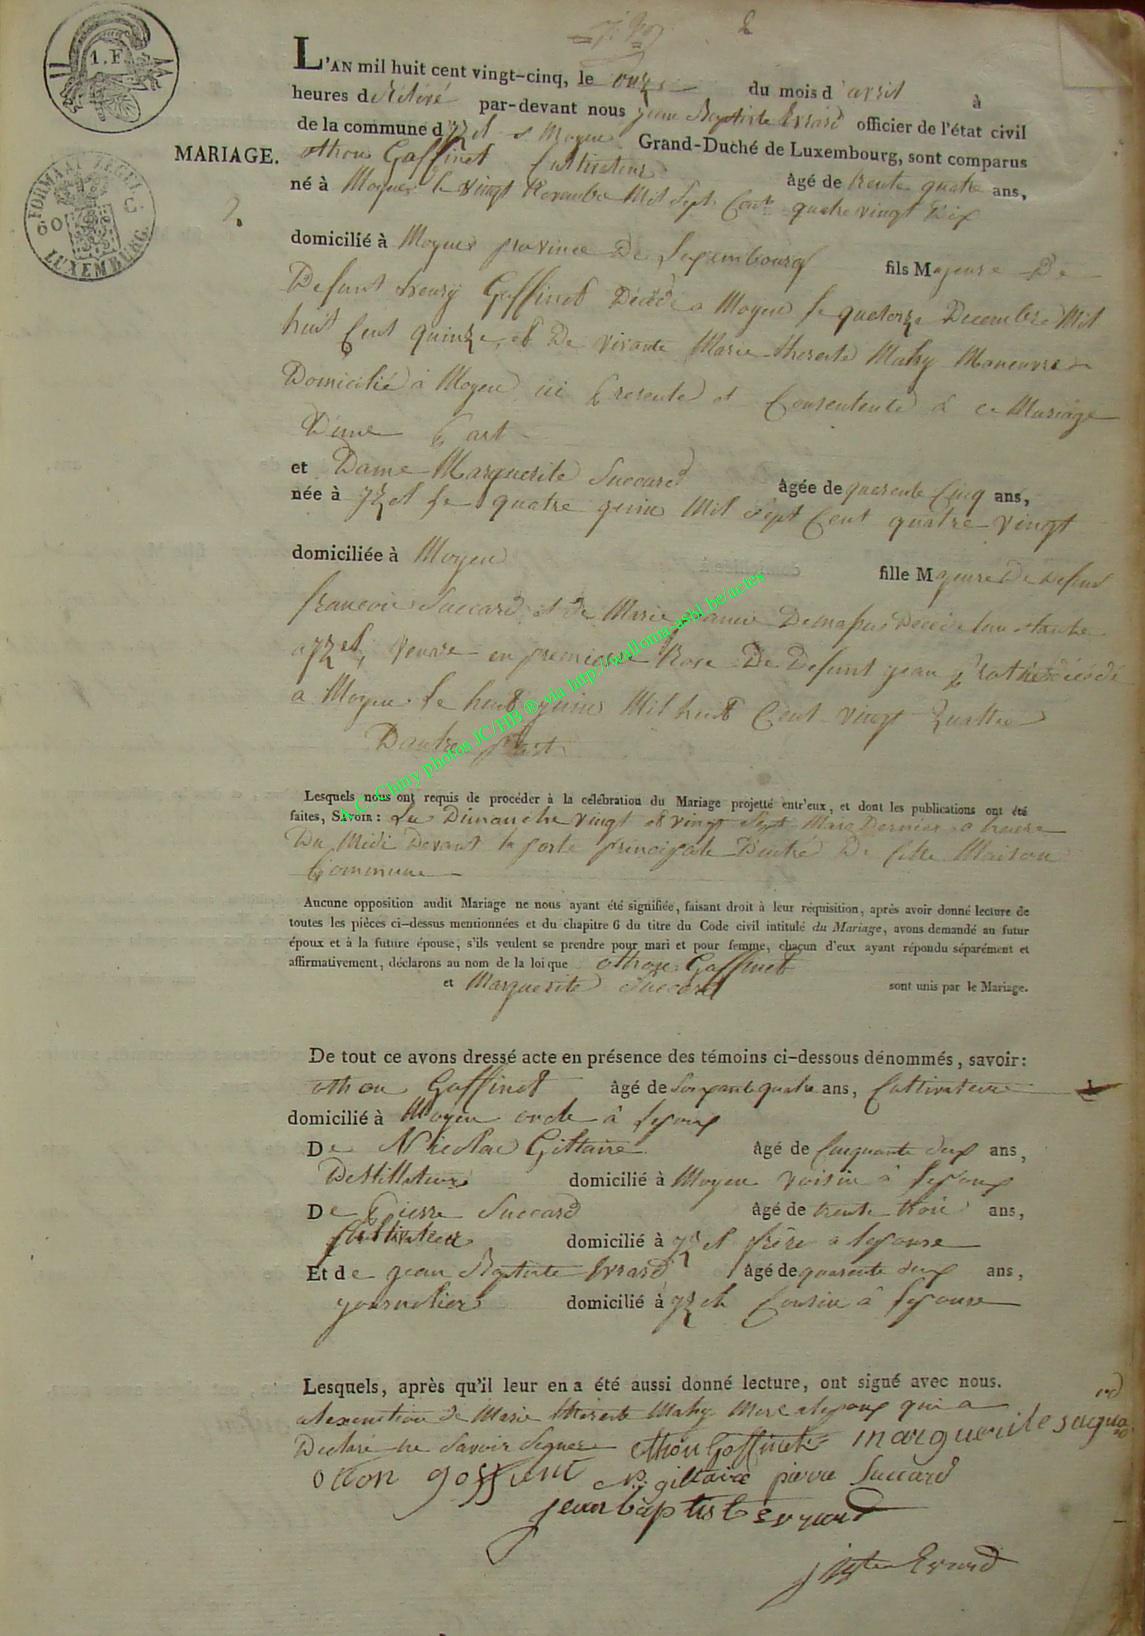 1. F.
FORMAAT ZEGEL
60 C.
LUXEMBURG.
MARIAGE.
L'AN mil huit cent vingt-cinq, le onze du mois d'avril à
heures de Rélévé par-devant nous jean Baptiste Evrard officier de l'état civil
de la commune d'yzel & Moyen Grand-Duché de Luxembourg, sont comparus
othon Goffinet Cultivateur âgé de trente quatre ans,
né à Moyen le vingt Novembre Mil Sept Cent quatre vingt Dix
domicilié à Moyen province De Luxembourg fils Majeure De
Defunt henry Goffinet Décédé a Moyen le quatorze Decembre Mil
huit Cent quinze, et De vivante Marie therese Mahy Manouvre
Domicilié à Moyen ici presente et Consentente à ce Mariage
D'une part
et Dame Marguerite Succard âgée de quarente Cinq ans,
née à yzel le quatre juin Mil sept Cent quatre vingt
domiciliée à Moyen
fille Majeure De defunt
francois Succard et de Marie Decede
a yzel, veuve en premiere De Defunt jean décédé
a Moyen le huit juin Mil huit Cent vingt quattre
Dautre part
A.C. Chiny photos JC/HB ® via http://wallonia-asbl.be/actes
Lesquels nous ont requis de procéder à la célébration du Mariage projetté entr'eux, et dont les publications ont été
faites, Savoir: Les Dimanche vingt et vingt Sept Mars Dernier a heure
Du Midi Devant la porte principale D'entré De Cette Maison
Commune
Aucune opposition audit Mariage ne nous ayant été signifiée, faisant droit à leur réquisition, après avoir donné lecture de
toutes les pièces ci-dessus mentionnées et du chapitre 6 du titre du Code civil intitulé du Mariage, avons demandé au futur
époux et à la future épouse, s'ils veulent se prendre pour mari et pour femme, chacun d'eux ayant répondu séparément et
affirmativement, déclarons au nom de la loi que othon Goffinet
et Marguerite Succard sont unis par le Mariage.
De tout ce avons dressé acte en présence des témoins ci-dessous dénommés, savoir:
othon Goffinet âgé de Soixante quatre ans, Cultivateur
domicilié à Moyen oncle à lepoux
De Nicolas Giltaire âgé de Cinquante deux ans,
Destillateur domicilié à Moyen voisin à lepoux
De Pierre Succard âgé de trente trois ans,
Cultivateur domicilié à yzel frère a lepouse
Et de jean Baptiste Evrard âgé de quarente deux ans,
journalier domicilié à yzel Cousin à lepouse
Lesquels, après qu'il leur en a été aussi donné lecture, ont signé avec nous.
alexention de Marie therese Mahy Mere alepoux qui a
Declaré ne Savoir Signer othon Goffinet marguerite suquard
otton goffinet N: giltaire pierre Succard
jean baptist evrard
Evrard